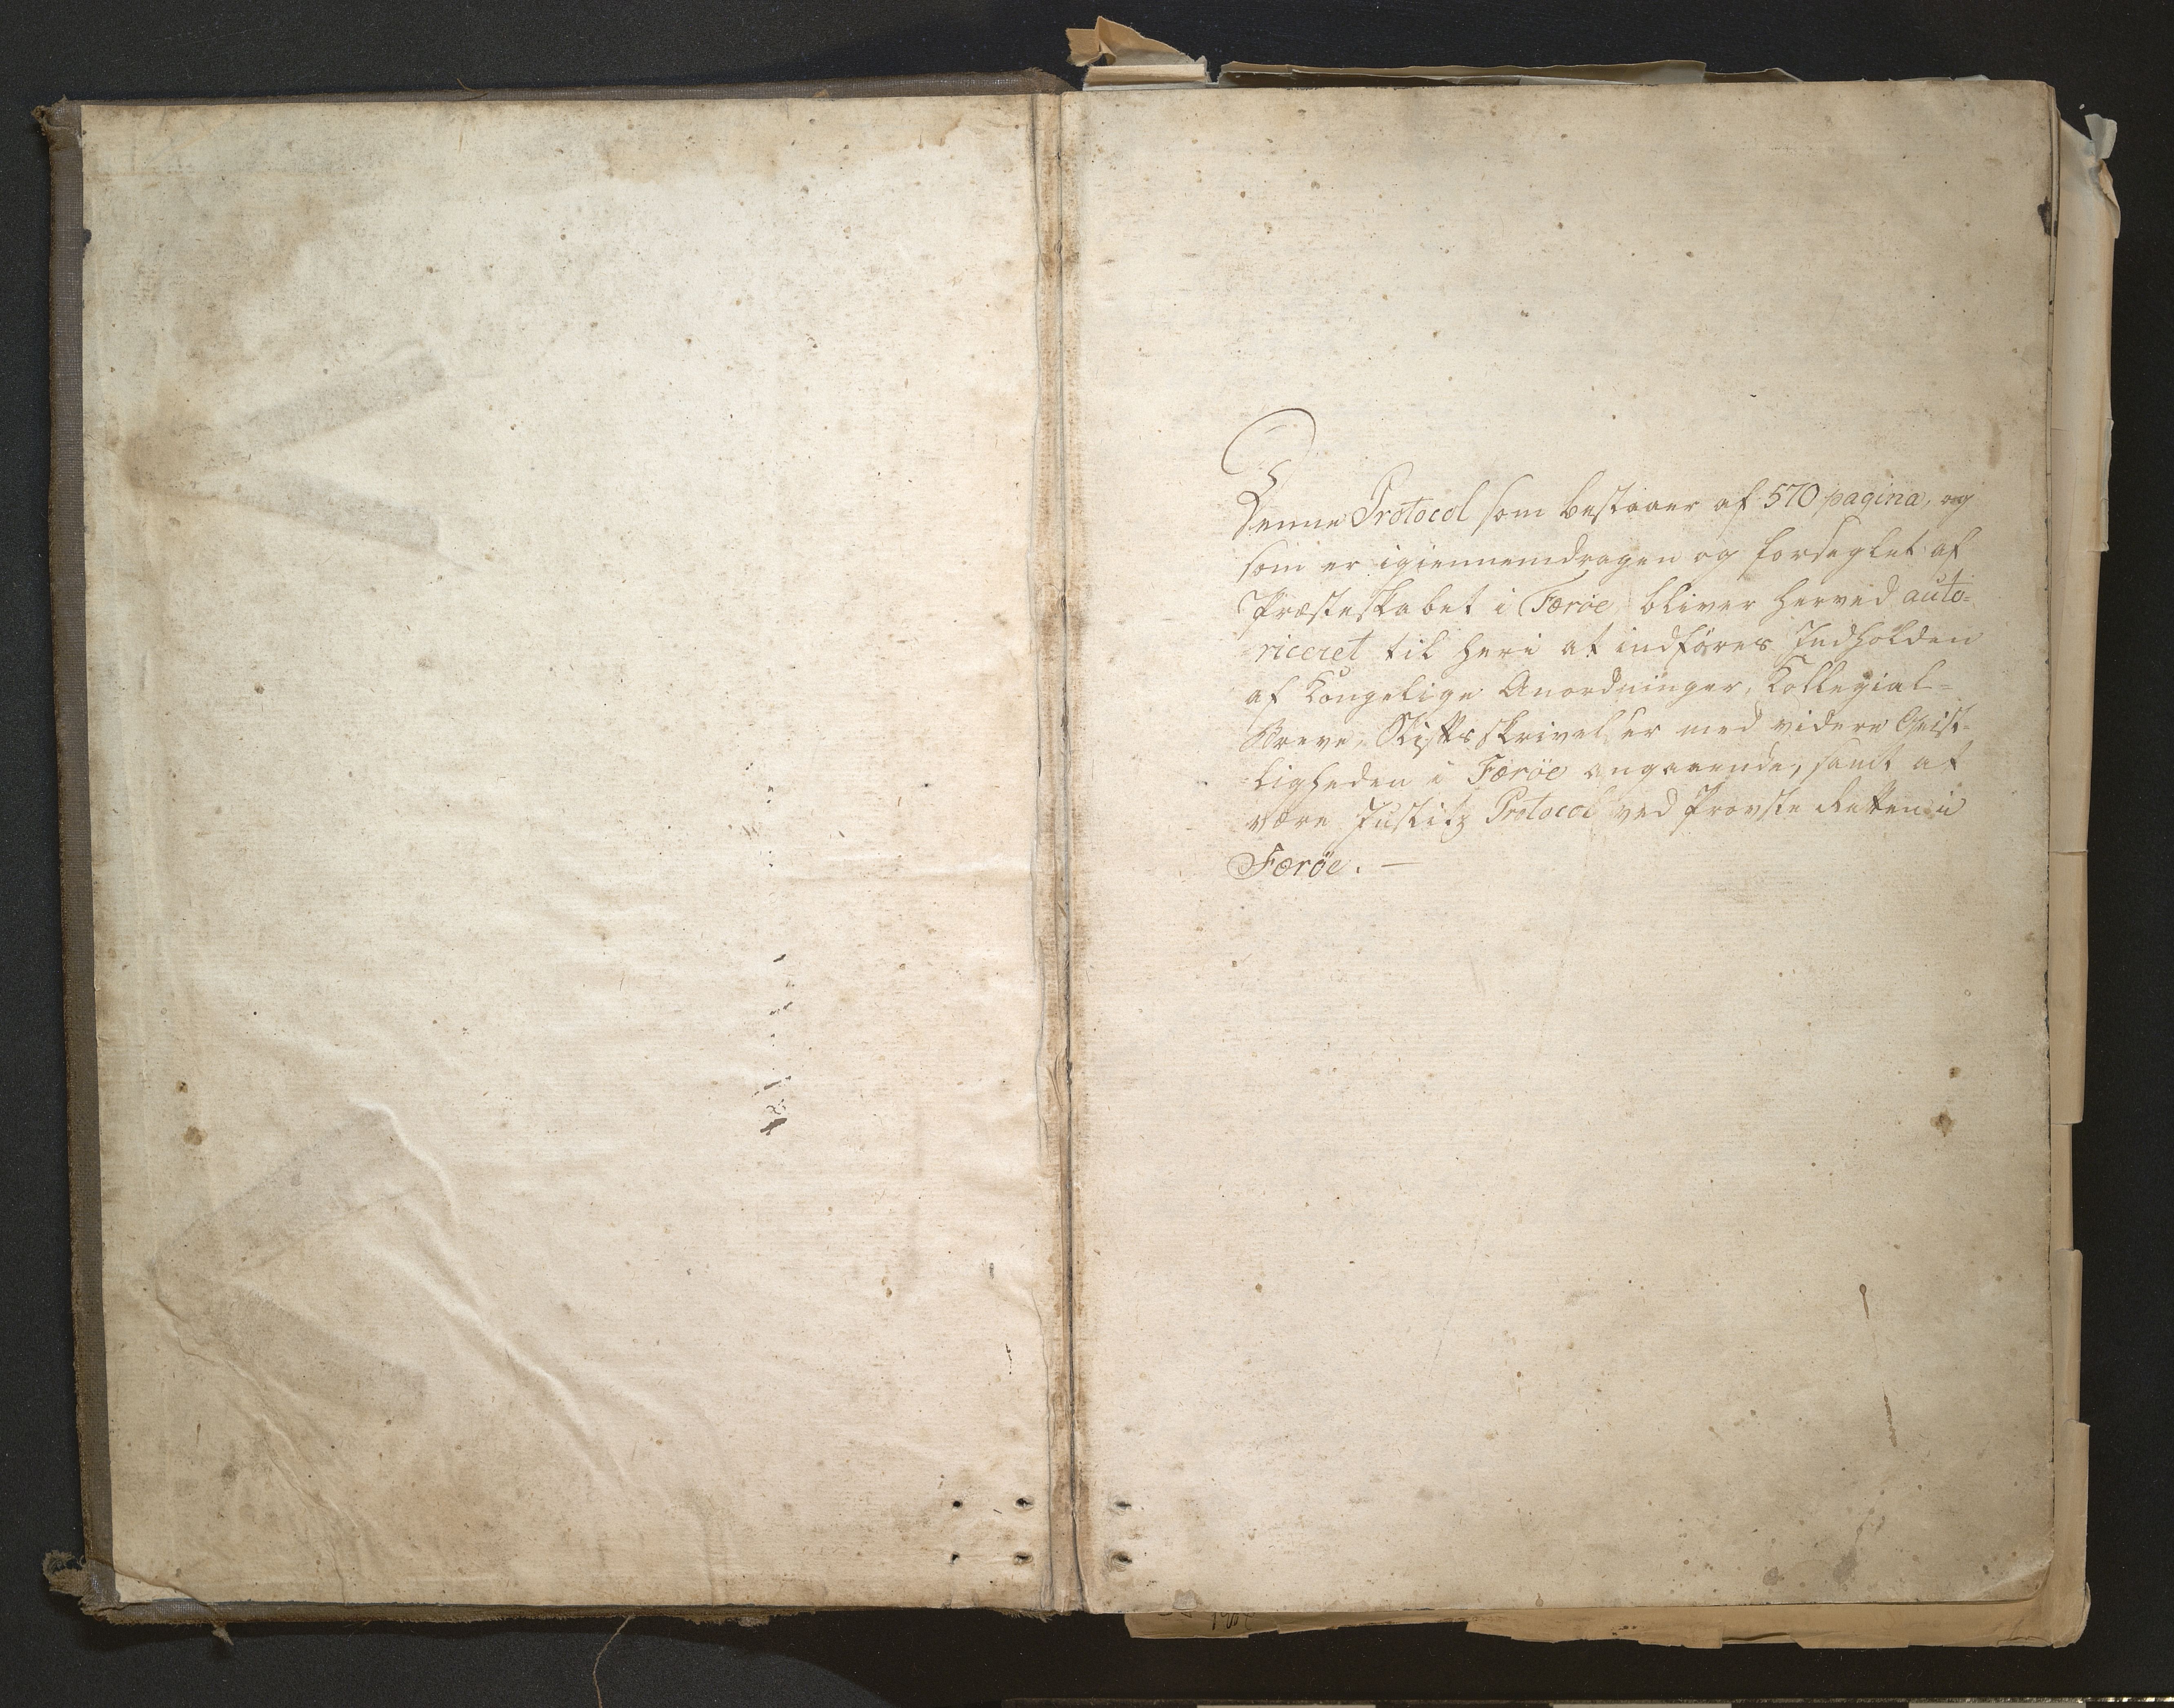 Denne Protocol som bestaaer af 570 pagina, og
som er igiennemdragen og forseglet af
Præsteskabet i Færöe bliver herved auto=
riceret til heri at indføres Indholden
af Kongelige Anordninger, Kollegial=
Breve, Stiftsskrivelser med videre Geist=
=ligheden i Færöe angaaende, samt at
være Justitz Protocol ved Provste Retten i
Færöe. —